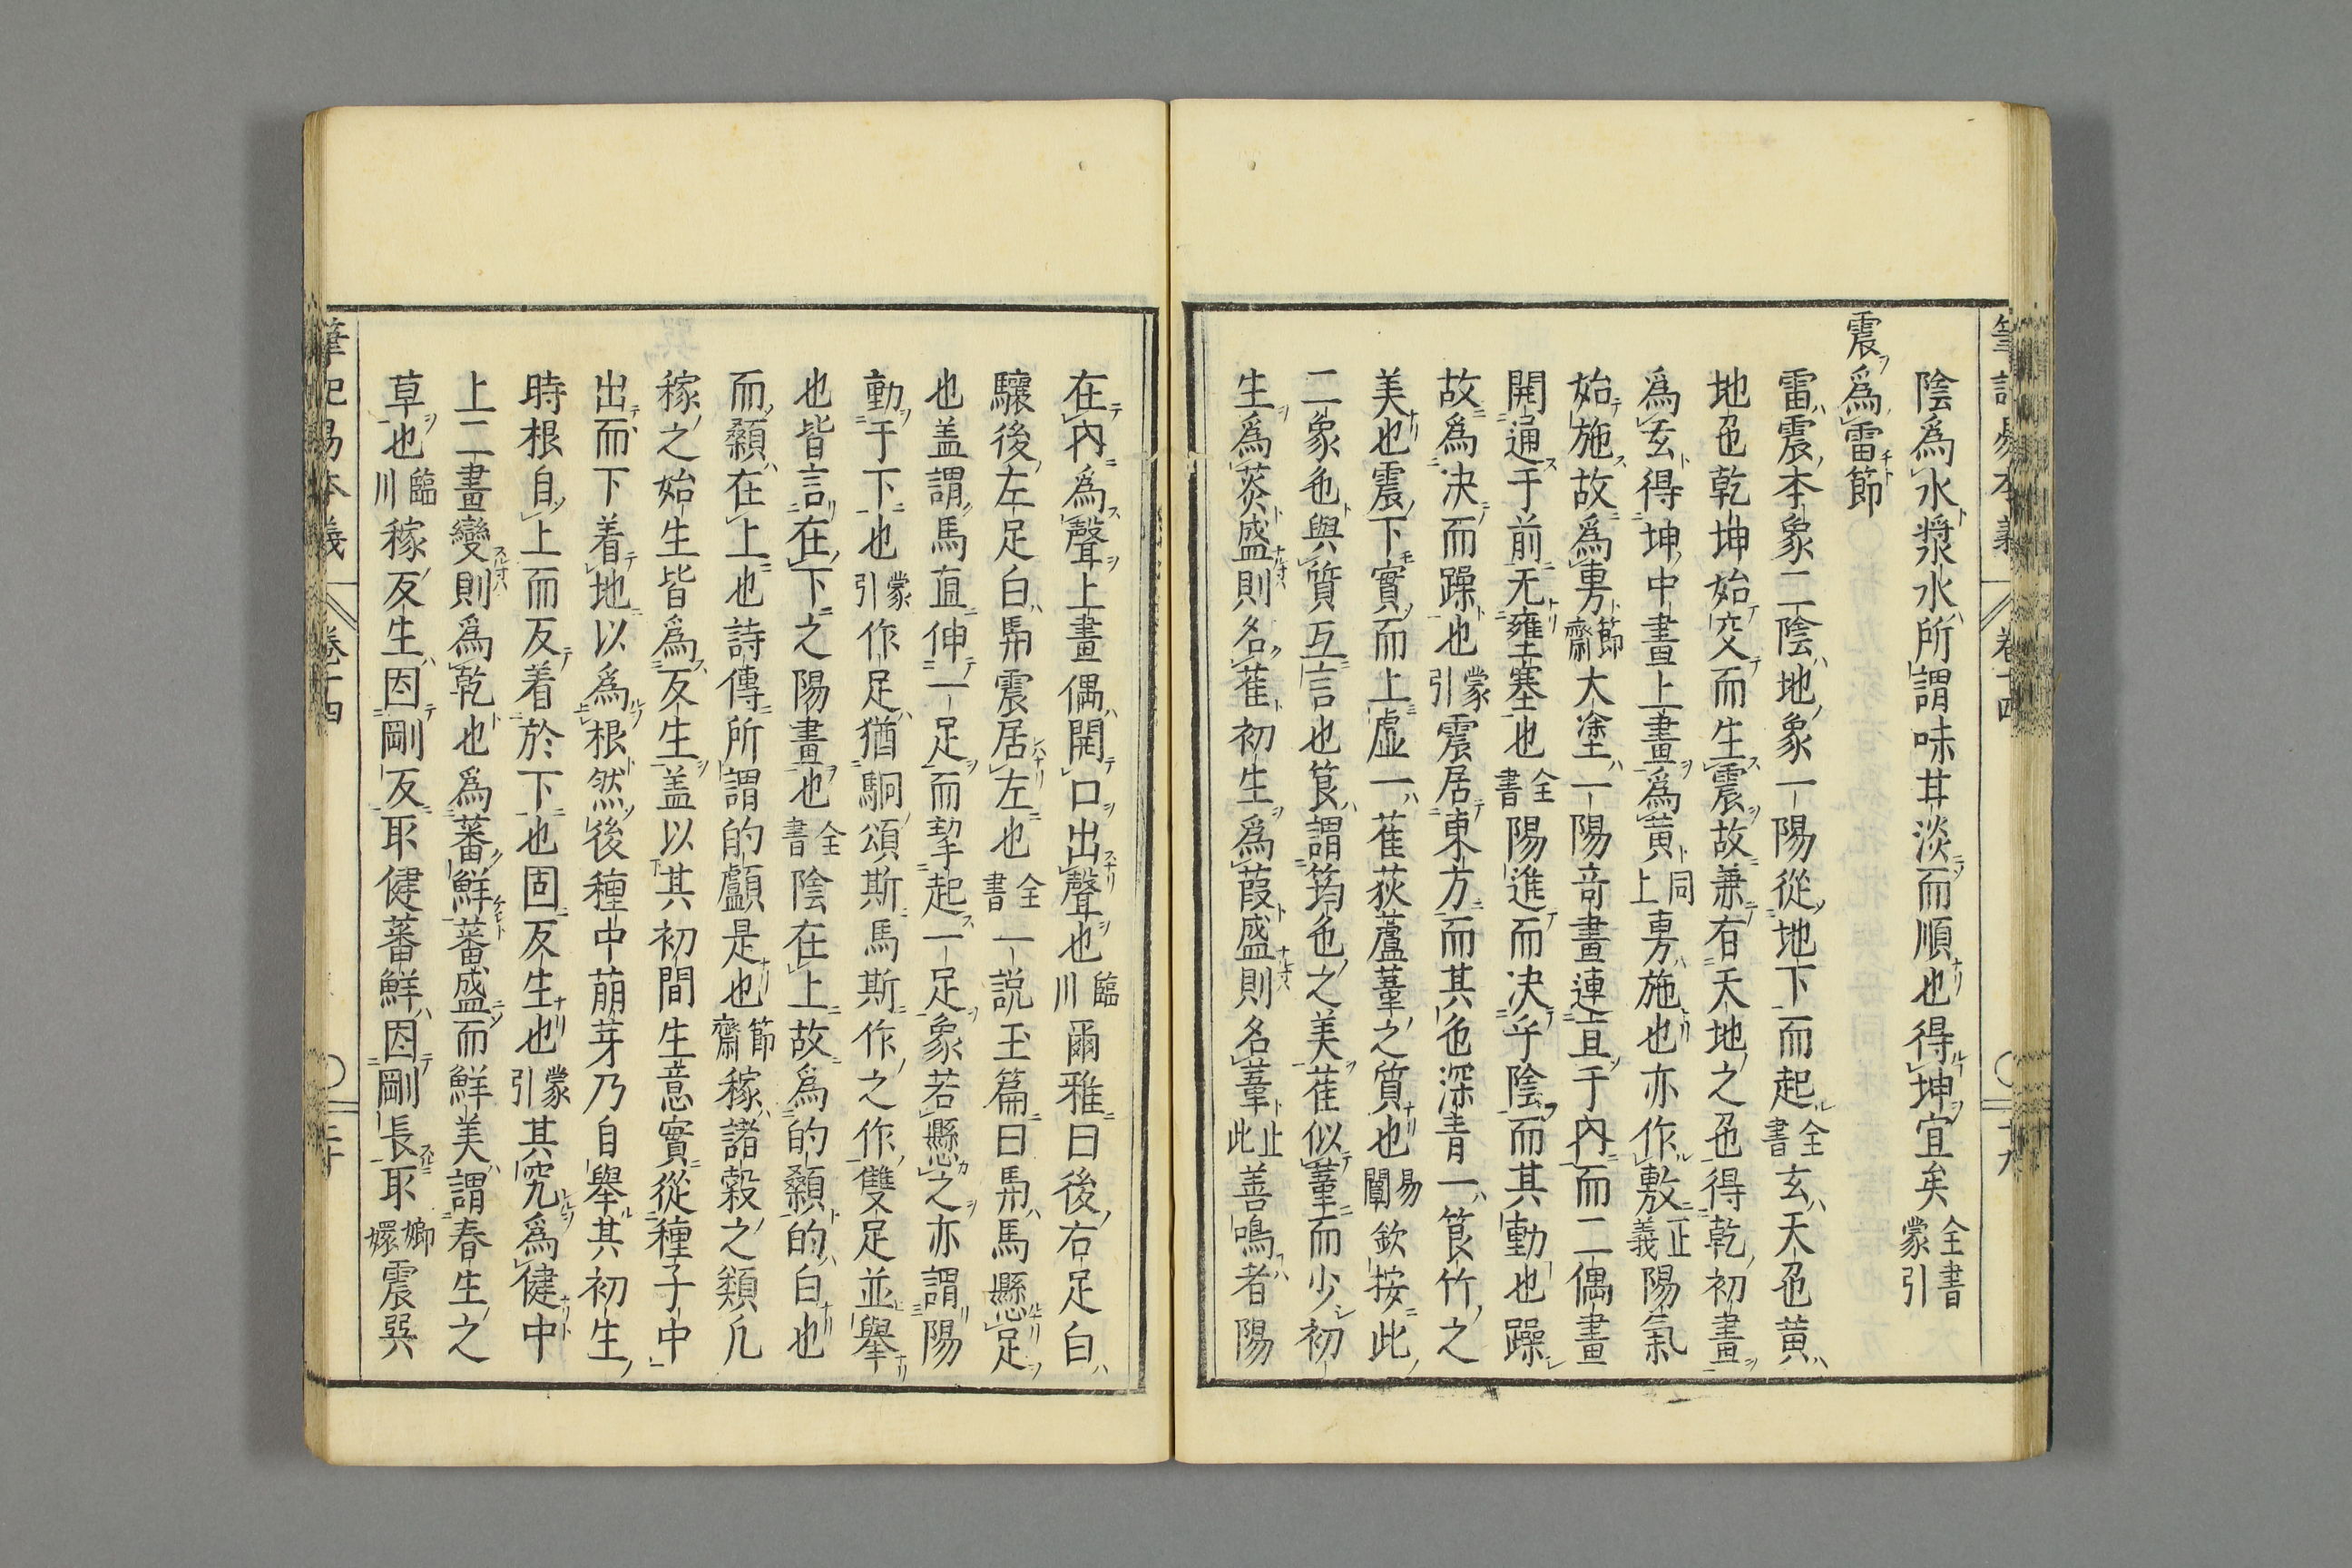 陰爲水漿水所謂味甘淡而順也得坤宜矣全書蒙引
震爲雷節
雷震本象二陰地象一陽從地下而起全書玄天色黃
地色乾坤始交而生震故兼有天地之色得乾初畫
爲玄得坤中畫上畫爲黃同上旉施也亦作敷正義陽氣
始施故爲旉節齋大塗一陽竒畫連亘于內而二偶畫
開通于前无壅塞也全書陽進而决乎陰而其動也躁
故爲决而躁也蒙引震居東方而其色深青一筤竹之
美也震下實而上虛一萑荻蘆葦之質也易闡欽按此
二象色與質互言也筤謂筠色之美萑似葦而少初
生爲菼盛則名萑初生爲葭盛則名葦止此善鳴者陽
在內爲聲上畫偶開口出聲也臨川爾雅曰後右足白
驤後左足白馵震居左也全書一說玉篇曰馵馬懸足
也盖謂馬直伸一足而挈起一足象若懸之亦謂陽
動于下也蒙引作足猶駉頌斯馬斯作之作雙足並舉
也皆言在下之陽畫也全書陰在上故爲的顙的白也
而顙在上也詩傳所謂的顱是也節齋稼諸穀之類凡
稼之始生皆爲反生盖以其初間生意實從種子中
出而下着地以爲根然後種中萠芽乃自舉其初生
時根自上而反着於下也固反生也蒙引其究爲健中
上二畫變則爲乾也爲蕃鮮蕃盛而鮮美謂春生之
草也臨川稼反生因剛反取健蕃鮮因剛長取嫏嬛震巽